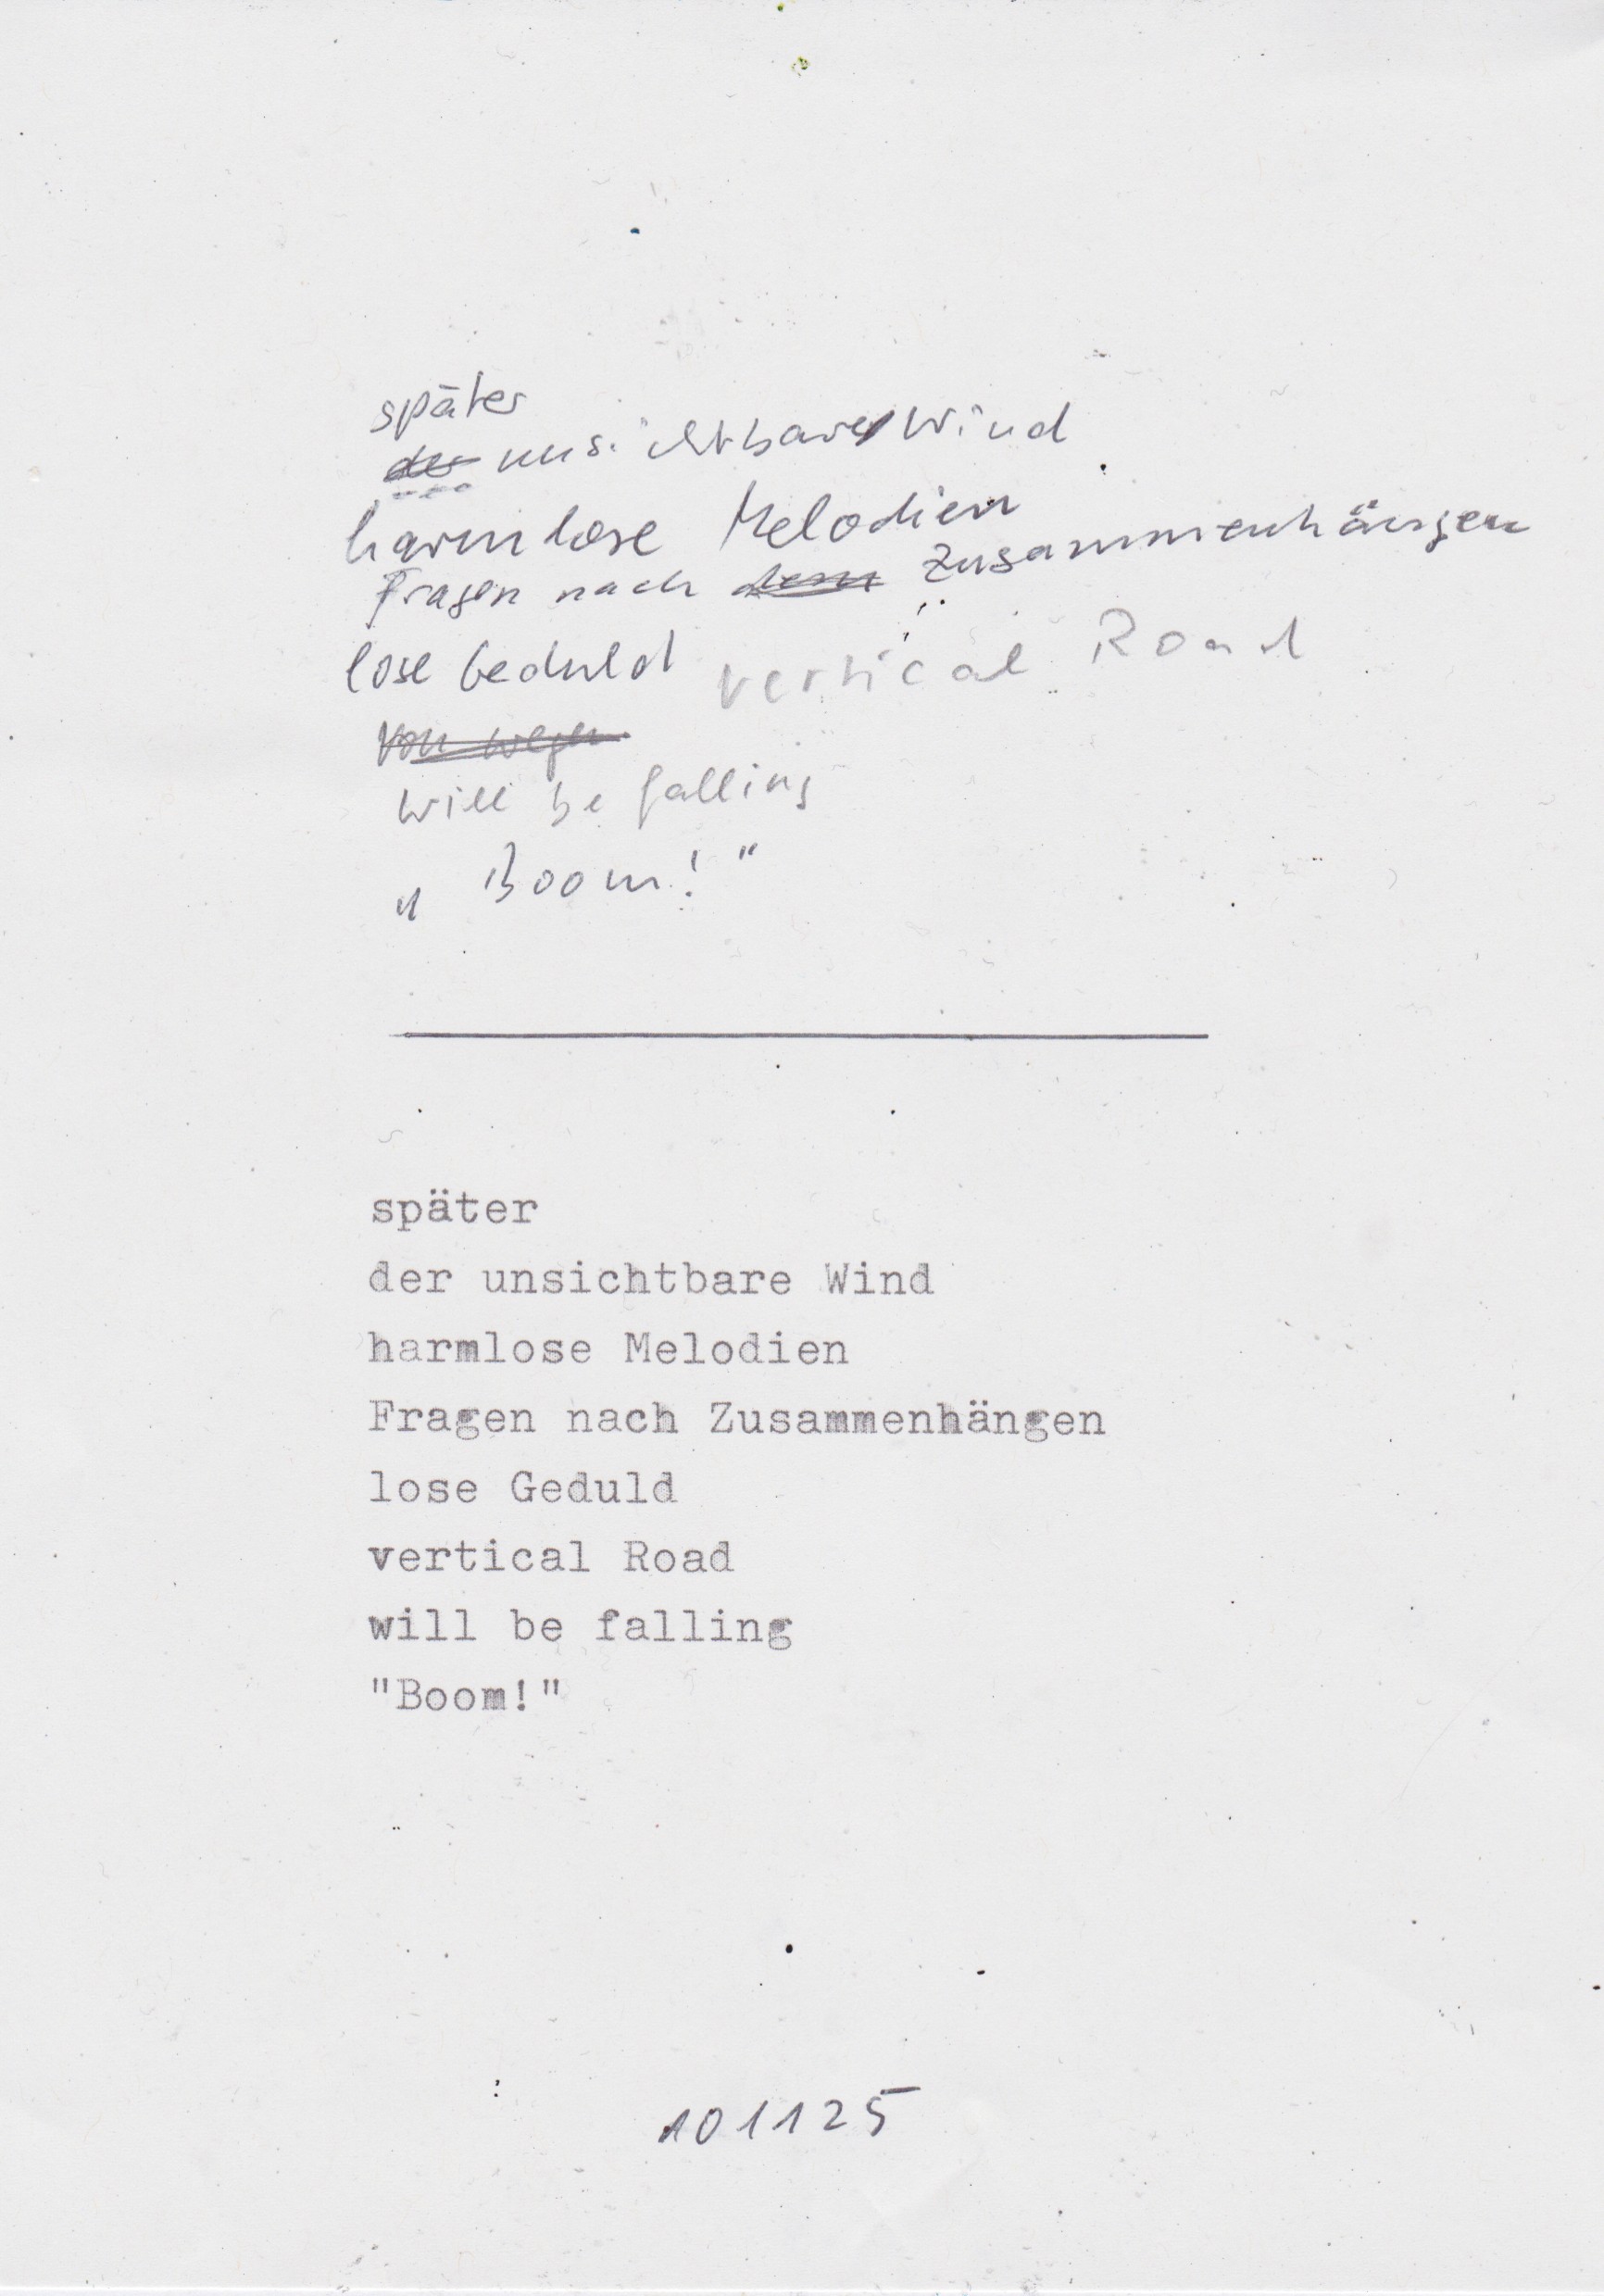 später
der unsichtbare Wind
harmlose Melodien
Fragen nach dem Zusammenhängen
lose Geduld vertical Road
Von wegen
will be falling
„Boom!"
später
der unsichtbare Wind
harmlose Melodien
Fragen nach Zusammenhängen
lose Geduld
vertical Road
will be falling
"Boom!"
101125